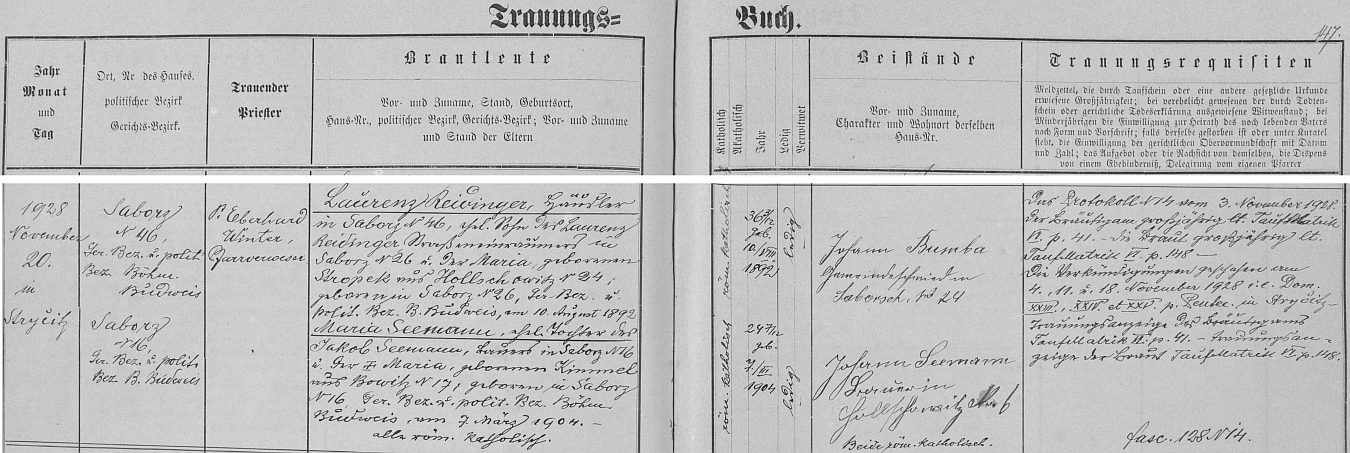 Trauungs= Buch.
147.
Jahr
Monat
und
Tag
Ort, Nr des Hauses,
politischer Bezirk
Gerichts-Bezirk.
Trauender
Priester
Brautleute
Vor- und Zuname, Stand, Geburtsort,
Haus-Nr., politischer Bezirk, Gerichts-Bezirk; Vor- und Zuname
und Stand der Eltern
Katholisch
Akatholisch
Jahr
Ledig
Verwitwet
Beistände
Vor- und Zuname,
Charakter und Wohnort derselben
Haus-Nr.
Trauungsrequisiten
Meldzettel, die durch Taufschein oder eine andere gesetzliche Urkunde
erwiesene Großjährigkeit; bei verehelicht gewesenen der durch Todten-
schein oder gerichtliche Todeserklärung ausgewiesene Witwenstand; bei
Minderjährigen die Einwilligung zur Heirath des noch lebenden Vaters
nach Form und Vorschrift; falls derselbe gestorben ist oder unter Kuratel
steht, die Einwilligung der gerichtlichen Obervormundschaft mit Datum
und Zahl; das Aufgebot oder die Nachsicht von demselben, die Dispens
von einem Ehebinderniß, Delegirung vom eigenen Pfarrer
1928
November
20.
in
Stryčitz
Saborz
N 46,
Ger. Bez. u. polit.
Bez. Böhm.
Budweis
Saborz
N 16,
Ger. Bez. u. polit.
Bez. B. Budweis
P. Eberhard
Winter,
Pfarrverweser
Laurenz Reidinger, Häusler
in Saborz N 46, ehel. Sohn des Laurenz
Reidinger Straßeneinräumers in
Saborz N 26 u. der Maria, geborenen
Kropek aus Hollschowitz N 24;
geboren in Saborz N 26, Ger. Bez. u.
polit. Bez. B. Budweis, am 10. August 1892
Maria Seemann, ehel. Tochter des
Jakob Seemann, Bauers in Saborz N 16
u. der Maria, geborenen Kimmel
aus Bowitz N 17, geboren in Saborz
N 16 Ger. Bez. u. polit. Bez. Böhm.
Budweis, am 7. März 1904. –
alle röm. katholisch.
röm. katholisch
geb.
10/VIII
1892
ledig
röm. katholisch
geb.
7./III
1904
ledig
Johann Bumba
Gemeindeschmied in
Saborsch, No 24
Johann Seemann
Bauer in
Hollschowitz No 6
Beide röm. katholisch.
Das Protokoll N 14 vom 3. November 1928.
Der Bräutigam großjährig lt. Taufmatrik
VI. p. 41. – Die Braut großjährig lt.
Taufmatrik VI. p. 148 –
Die Verkündigungen geschahen am
4., 11. u. 18. November 1928 i. e. Dom.
XXIII, XXIV. et XXV. p. Pentec. in Stryčitz –
Trauungsanzeige des Bräutigams
Taufmatrik VI. p. 41. – Trauungsan-
zeige der Braut Taufmatrik VI. p. 148.
fasc. 128 N 14.